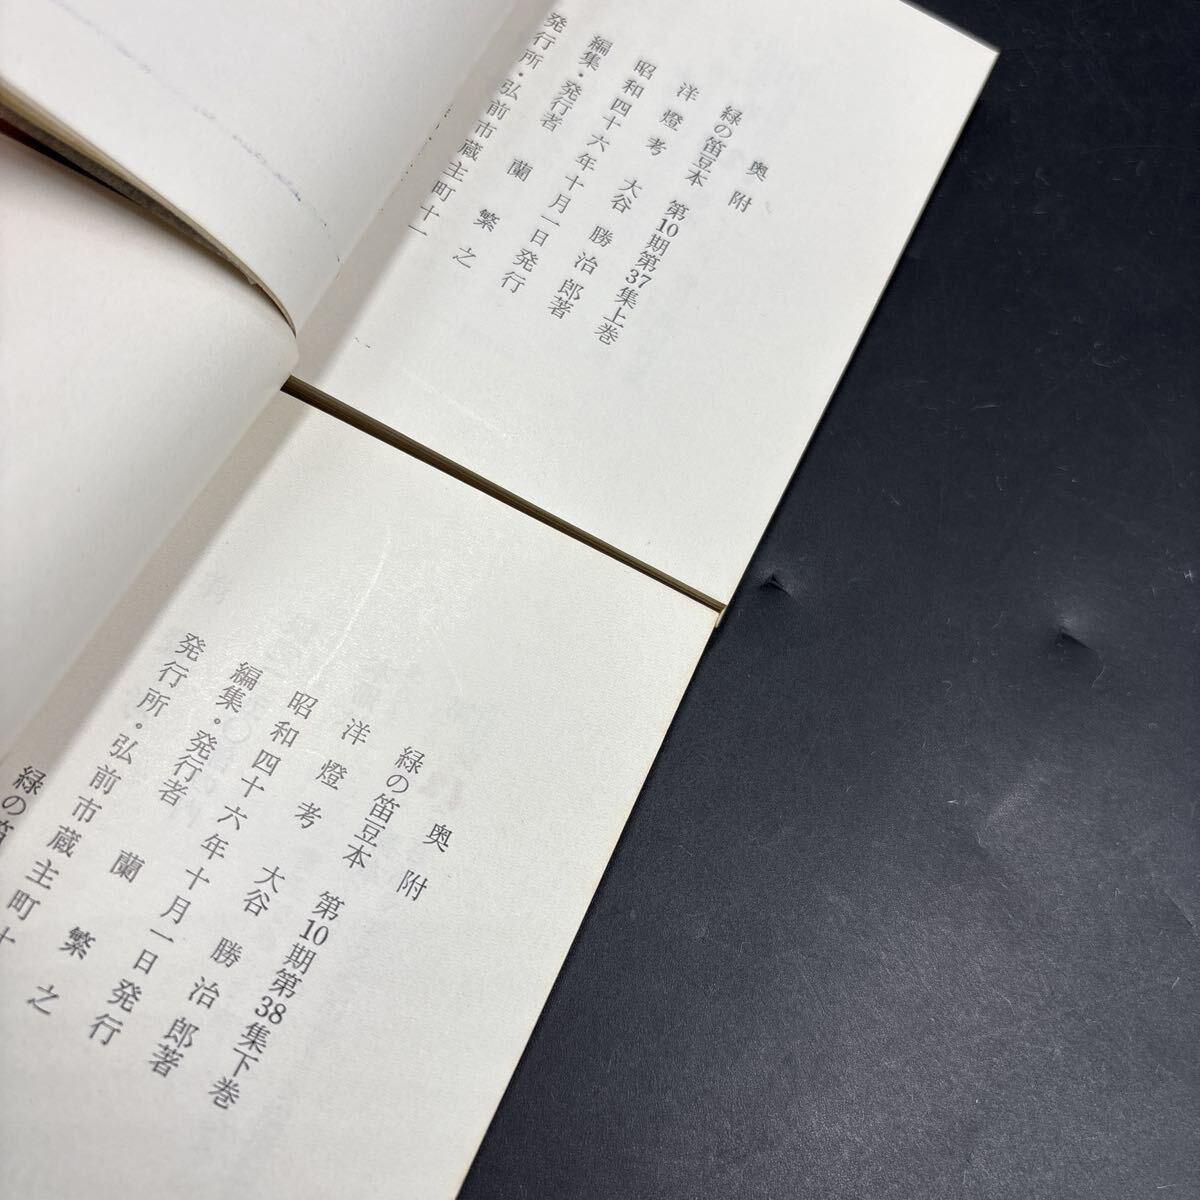 奥附
緑の笛豆本 第10期第37集上巻
洋燈考 大谷勝治郎著
昭和四十六年十月一日発行
編集・発行者 蘭繁之
発行所・弘前市蔵主町十一
奥附
緑の笛豆本 第10期第38集下巻
洋燈考 大谷勝治郎著
昭和四十六年十月一日発行
編集・発行者 蘭繁之
発行所・弘前市蔵主町十
緑の笛